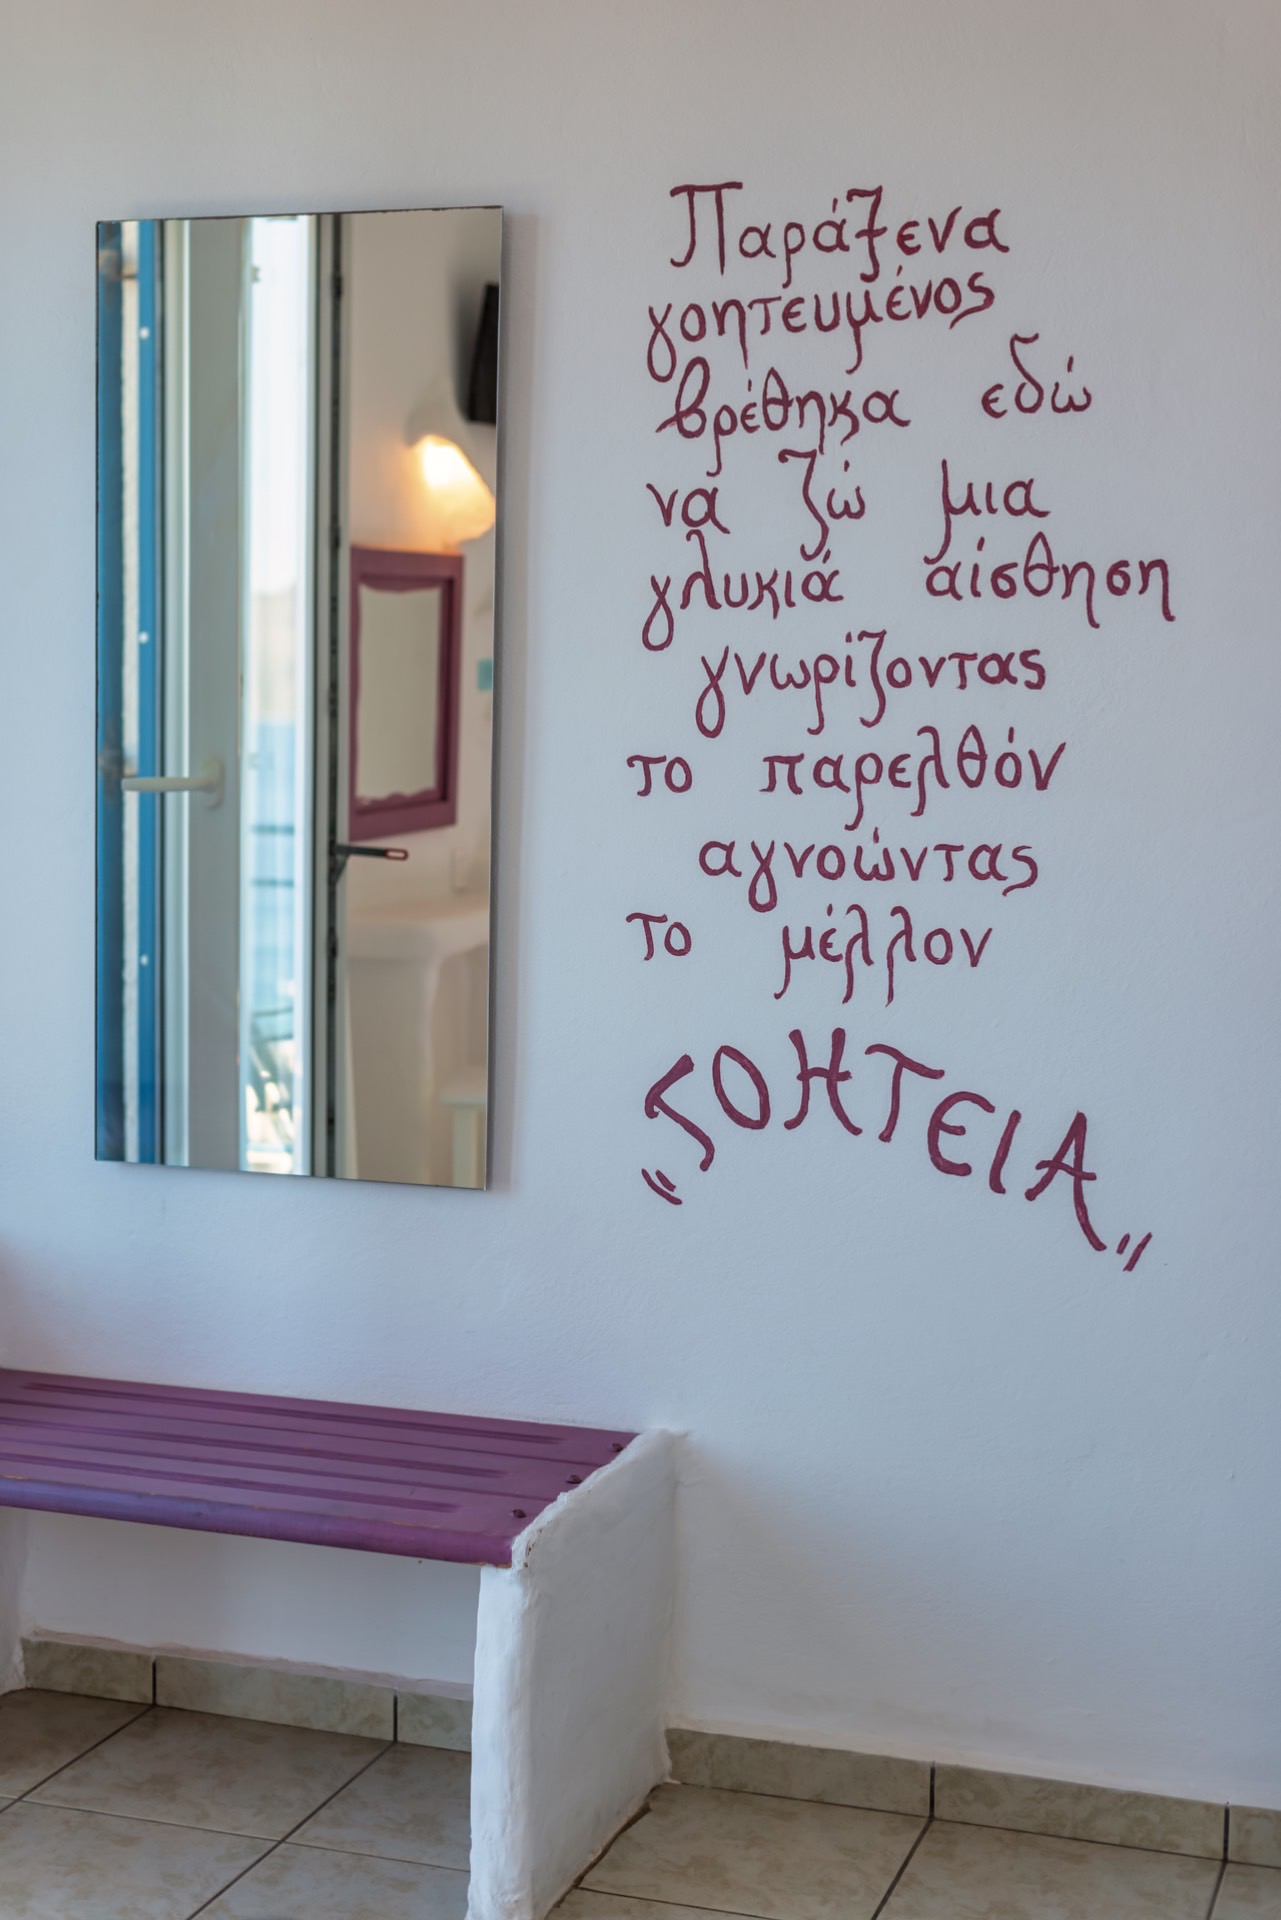 Παράξενα
γοητευμένος
βρέθηκα εδώ
να ζώ μια
γλυκιά αίσθηση
γνωρίζοντας
το παρελθόν
αγνοώντας
το μέλλον
"ΓΟΗΤΕΙΑ"